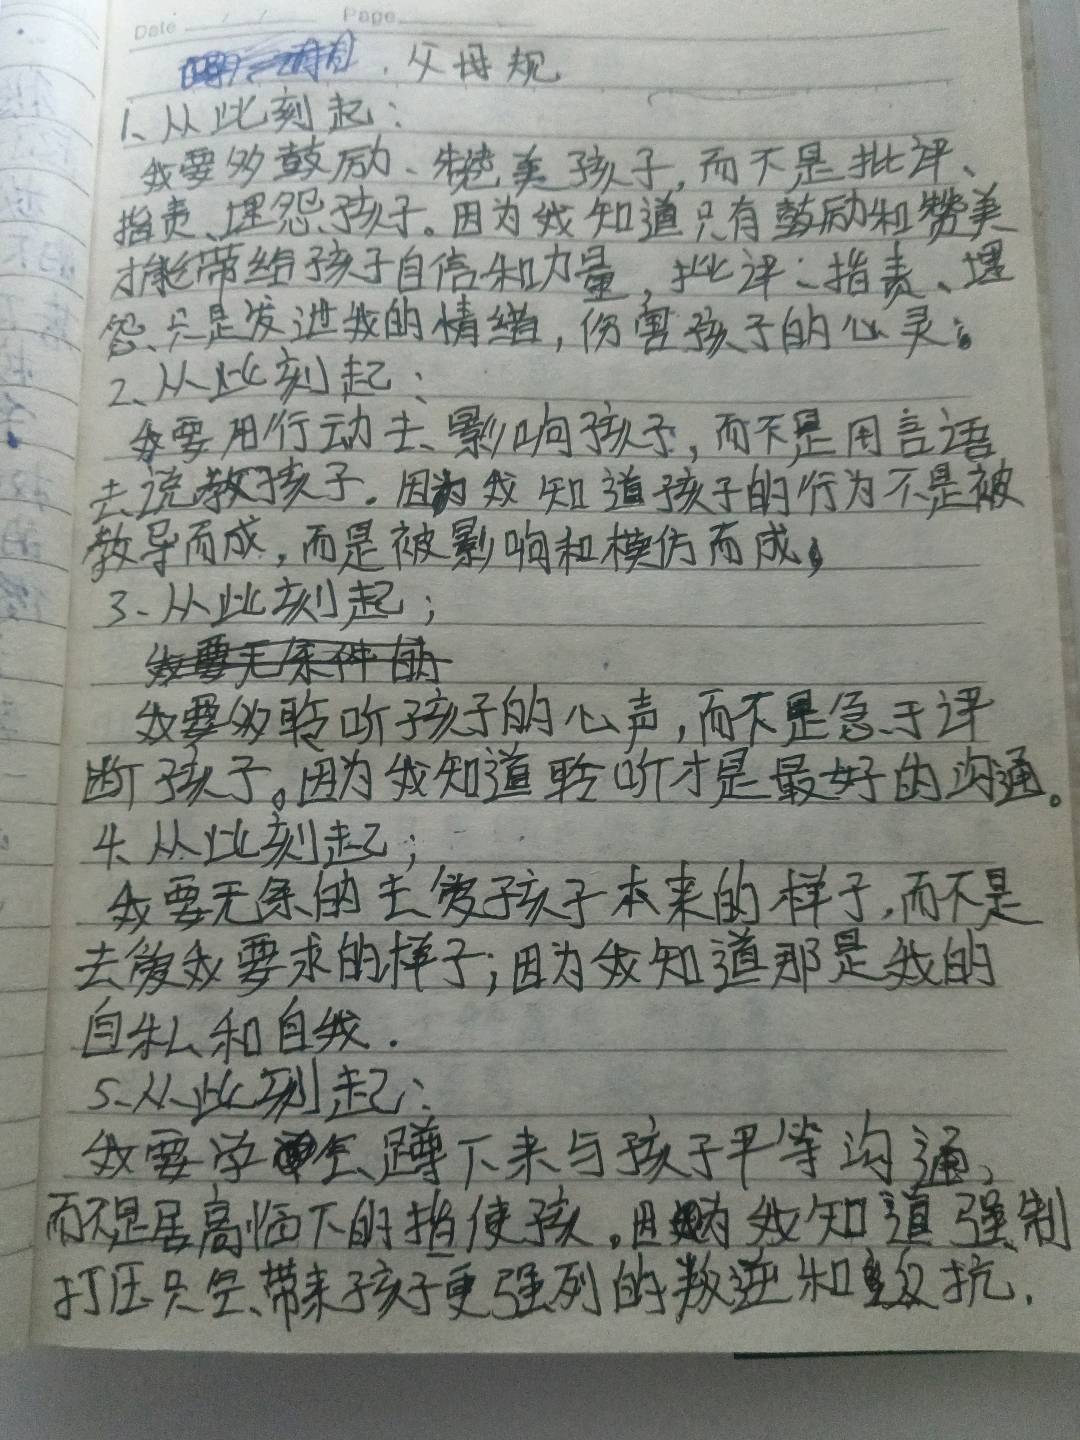 Date / / Page
父母规
1、从此刻起：
我要多鼓励、赞美孩子，而不是批评、
指责、埋怨孩子。因为我知道只有鼓励和赞美
才能带给孩子自信和力量，批评、指责、埋
怨、只是发泄我的情绪，伤害孩子的心灵。
2、从此刻起：
我要用行动去影响孩子，而不是用言语
去说教孩子。因为我知道孩子的行为不是被
教导而成，而是被影响和模仿而成。
3、从此刻起；
我要无条件的
我要多聆听孩子的心声，而不是急于评
断孩子。因为我知道聆听才是最好的沟通。
4、从此刻起；
我要无条的去爱子孩子本来的样子，而不是
去爱我要求的样子；因为我知道那是我的
自私和自我．
5、从此刻起：
我要学会蹲下来与孩子平等沟通，
而不是居高临下的指使孩。因为我知道强制
打压只会带来孩子更强列的叛逆和反抗．